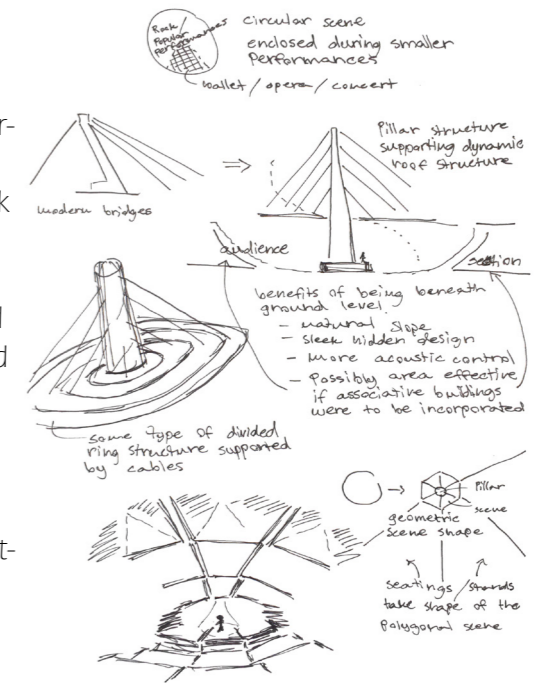 Rock/
Popular
performances
circular scene
enclosed during smaller
Performances
ballet / opera / concert
r-
k
modern bridges
Pillar structure
supporting dynamic
roof structure
audience
section
benefits of being beneath
ground level.
- natural slope
- sleek hidden design
- more acoustic control
- Possibly area effective
if associative buildings
were to be incorporated
d
some type of divided
ring structure supported
by cables
Pillar
scene
geometric
scene shape
t-
seatings / stands
take shape of the
Polygonal scene